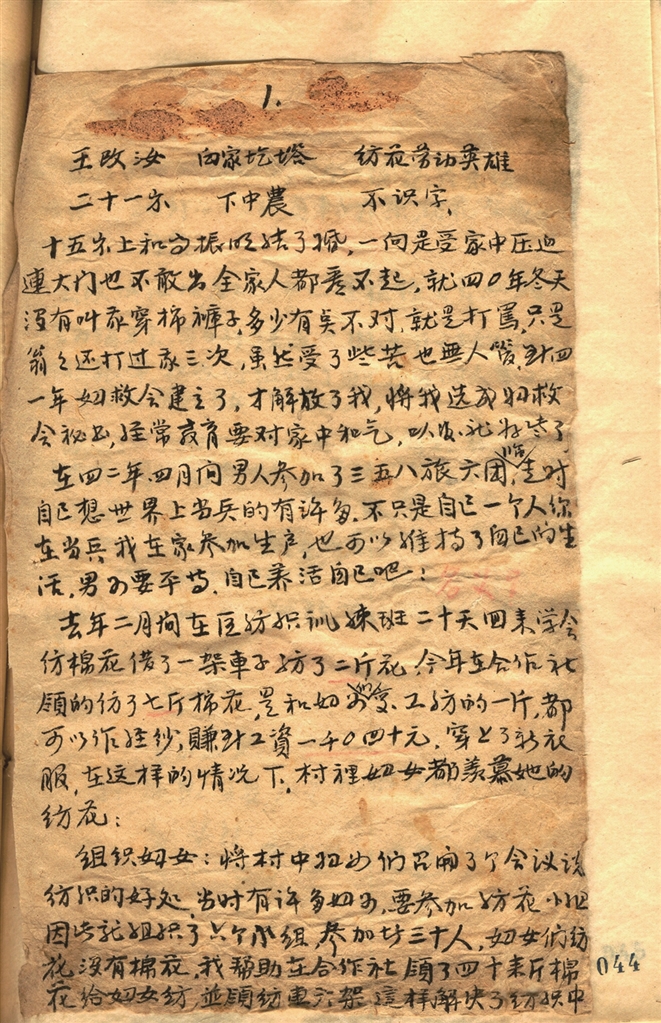 1.
王改汝 向家圪塔 纺花劳动英雄
二十一岁 下中農 不识字,
十五岁上和 振旺结了婚,一向是受家中压迫
連大门也不敢出全家人都看不起,就四0年冬天
没有叫我穿棉褲子,多少有点不对,就是打罵,只是
翁々还打过我三次,虽然受了些苦也無人管,到四
一年妇救会建立了,才解放了我,将我选成妇救
会秘书,经常教育要对家中和气,以后就好些了
在四二年四月间男人参加了三五八旅六团,临走时
自己想世界上当兵的有许多,不只是自己一个人你
在当兵我在家参加生产,也可以維持了自己的生
活,男女要平等,自己养活自己吧:
去年二月间在区纺织训練班二十天回来学会
纺棉花借了一架車子纺了二斤花,今年在合作社
領的纺了七斤棉花,是和妇女变工纺的一斤,都
可以作经纱,賺到工資一千0四十元,穿上了新衣
服,在这样的情况下,村裡妇女都羡慕她的
纺花:
组织妇女:将村中妇女们召開了个会议说
纺织的好处,当时有许多妇女,要参加纺花小组
因此就组织了六个小组,参加 三十人,妇女们纺
花没有棉花,我帮助在合作社領了四十来斤棉
花给妇女纺,並領纺車 架這样解决了纺织中
044